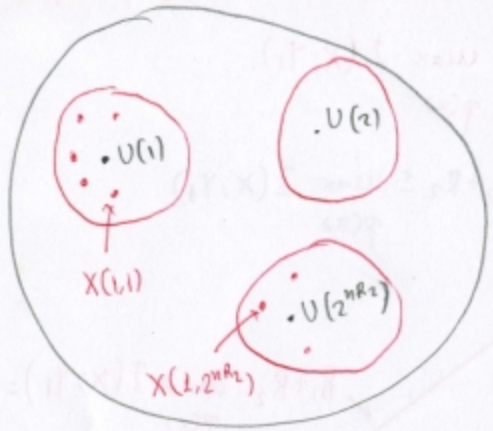 U(1)
U(2)
X(1,1)
U(2^{nR_2})
X(1,2^{nR_2})